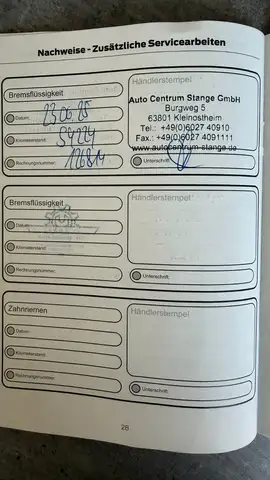 Nachweise - Zusätzliche Servicearbeiten
Bremsflüssigkeit
Datum: 23.06.25
Kilometerstand: 59224
Rechnungsnummer: 126814
Händlerstempel
Auto Centrum Stange GmbH
Burgweg 5
63801 Kleinostheim
Tel.: +49(0)6027 40910
Fax.: +49(0)6027 4091111
www.autocentrum-stange.de
Unterschrift:
Bremsflüssigkeit
Datum:
Kilometerstand:
Rechnungsnummer:
Händlerstempel
Unterschrift:
Zahnriemen
Datum:
Kilometerstand:
Rechnungsnummer:
Händlerstempel
Unterschrift:
28